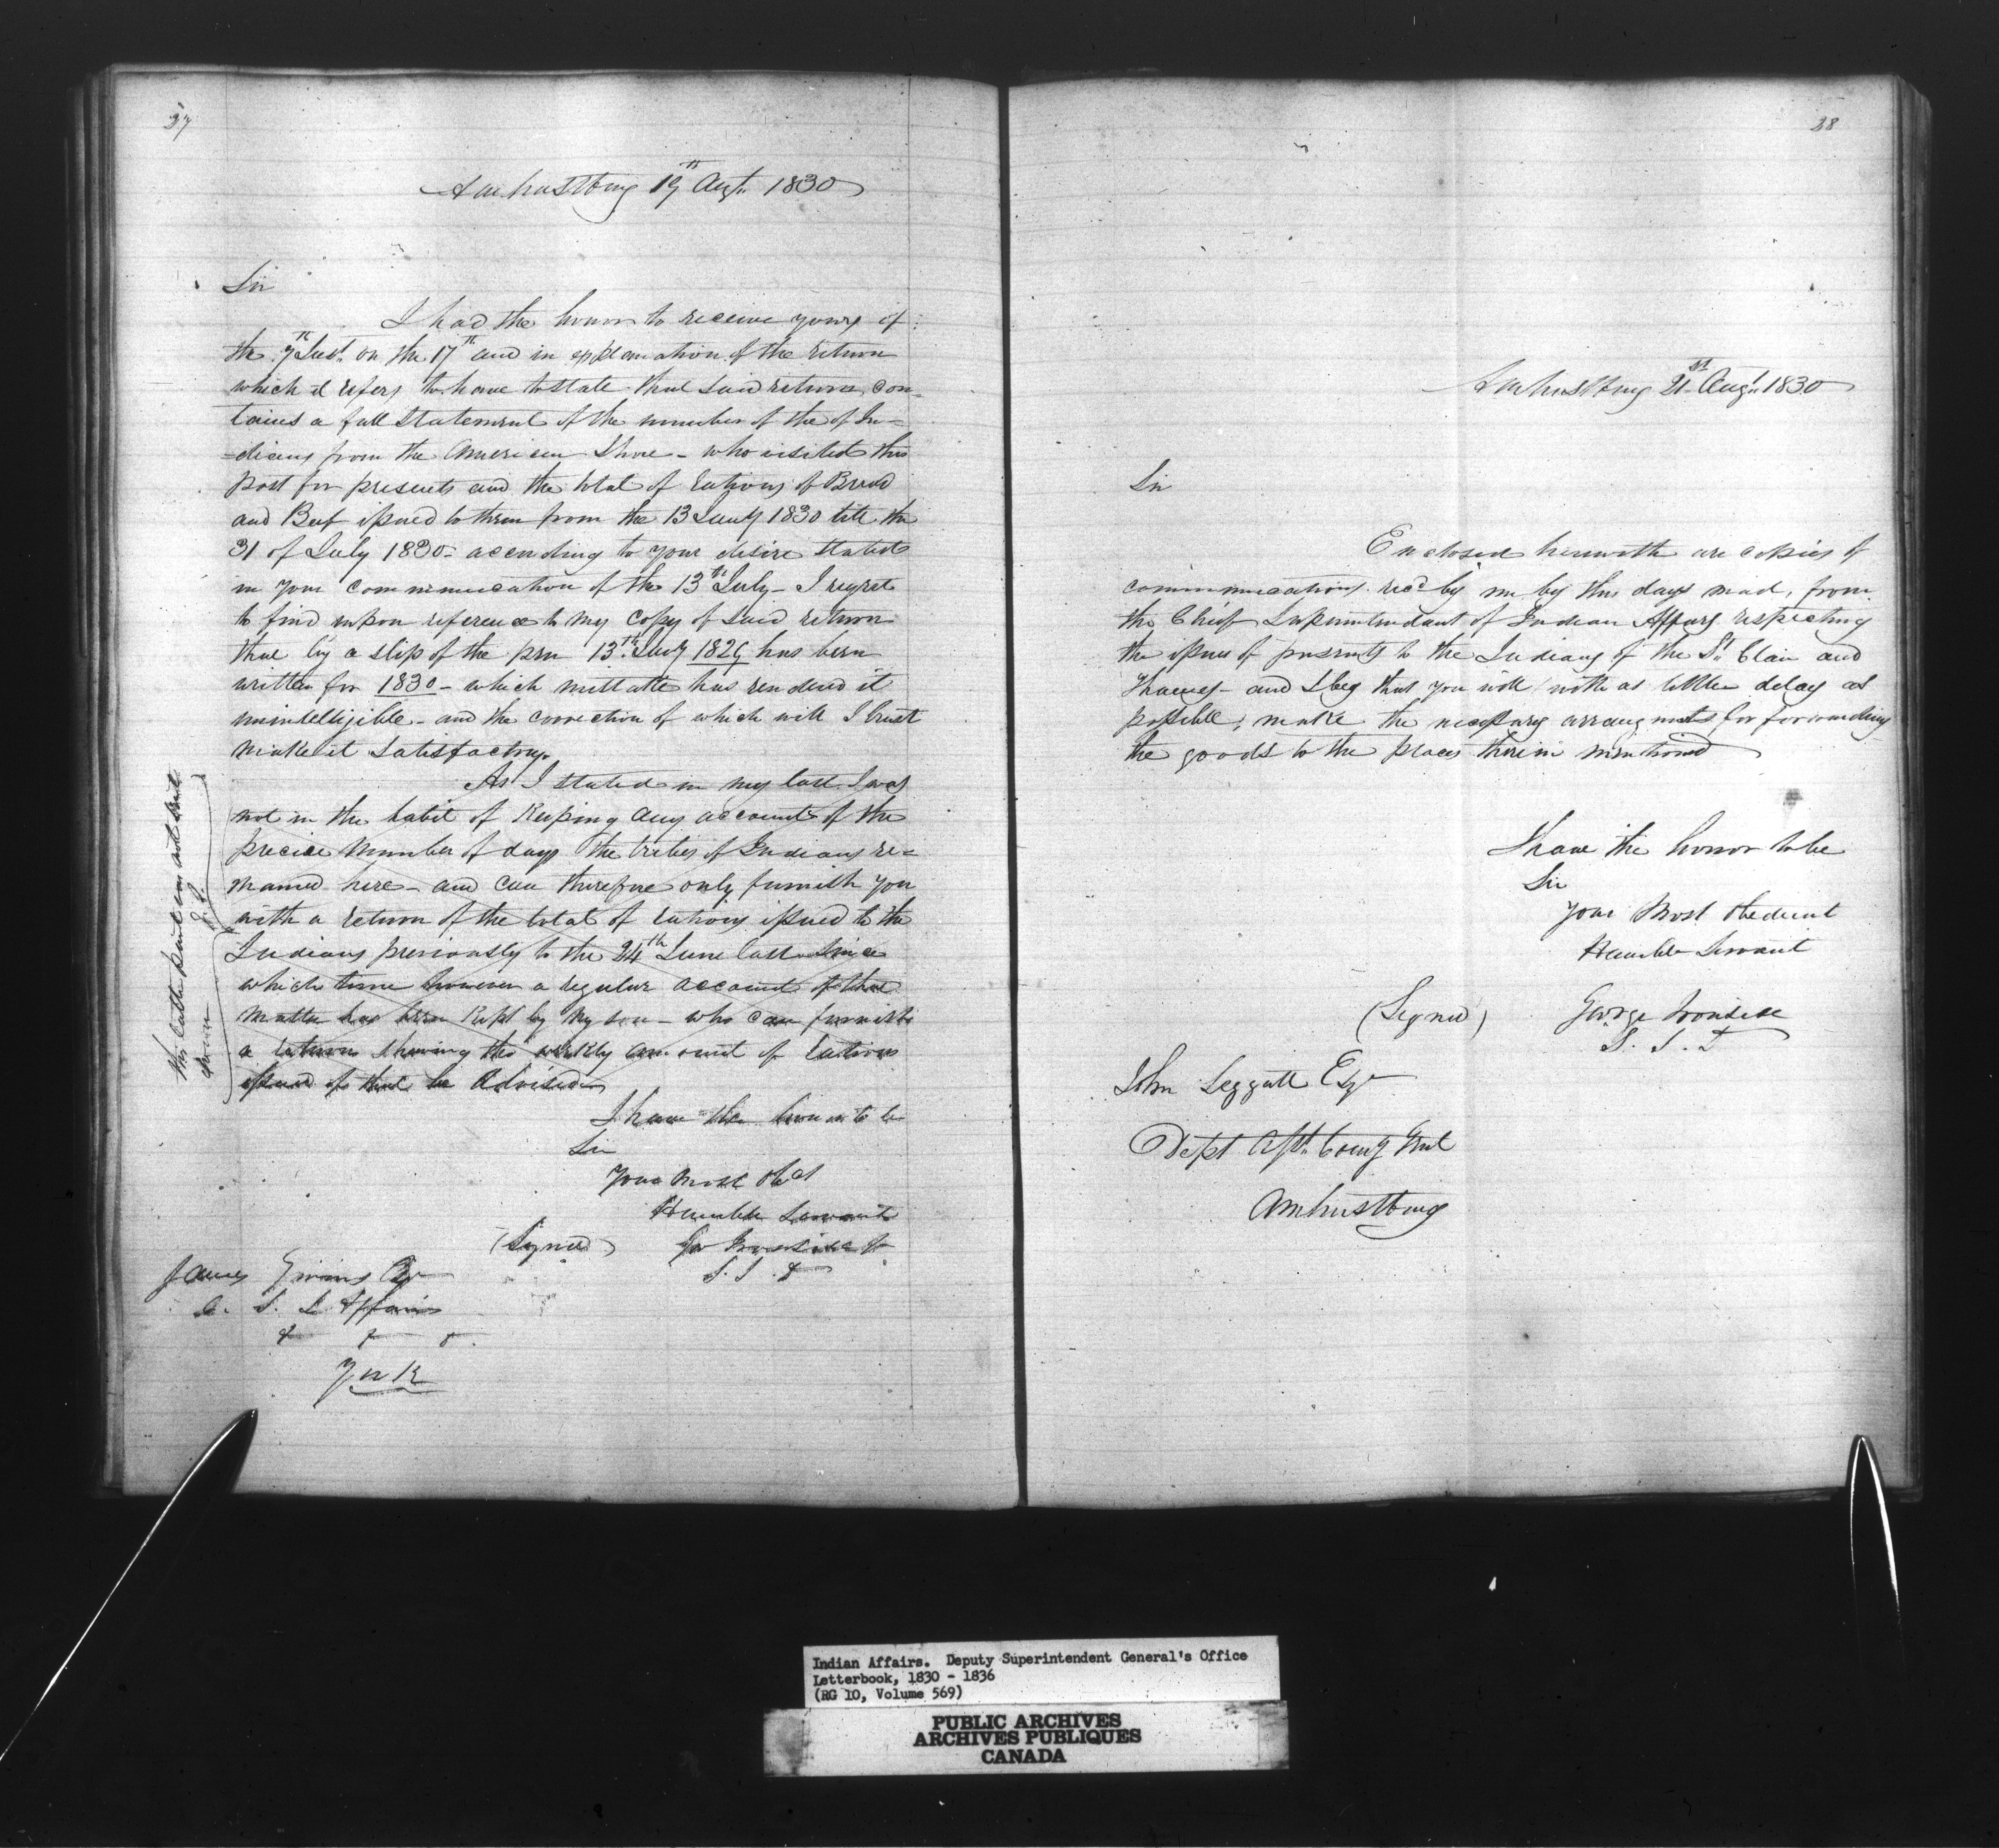 37
Amherstburg 19th Augt. 1830
Sir
I had the honor to receive yours of
the 7th Inst. on the 17th and in explanation of the return
which it refers to have to state that said return, con-
tains a full statement of the number of the of In-
-dians from the American Shore - who visited this
post for presents and the total of rations of Bread
and Beef issued to them from the 13 Jany 1830 till the
31 of July 1830 - according to your desire stated
in your communication of the 13th July - I regret
to find upon reference to my copy of said return
that by a slip of the pen 13th Jany 1829 has been
written for 1830 - which mistake has rendered it
unintelligible - and the correction of which will I trust
make it satisfactory.
As I stated in my last I was
not in the habit of keeping any account of the
precise number of days the tribes of Indians re-
mained here - and can therefore only furnish you
with a return of the total of rations issued to the
Indians previously to the 24th June last since
which time however a regular account of that
matter has been kept by my son - who can furnish
a return shewing the weekly amount of rations
issued if that be advised
I have the honor to be
Sir
Your most Obdt
Humble Servant
(Signed) Geo Ironside
S. I. A
James Givins Esqr
C. S. I. Affairs
& & &.
York
The latter part was not sent
down
38
Amherstburg 21st Augt. 1830
Sir
Enclosed herewith are copies of
communications recd by me by this days mail, from
the Chief Superintendant of Indian Affairs respecting
the issues of presents to the Indians of the St. Clair and
Thames - and I beg that you will with as little delay as
possible, make the necessary arrangements, for forwarding
the goods to the places therein mentioned
I have the honor to be
Sir
Your Most Obedient
Humble Servant
(Signed) George Ironside
S. I. A
John Leggatt Esqr
Dept Asst. Comy Genl
Amherstburg
Indian Affairs. Deputy Superintendent General's Office
Letterbook, 1830 - 1836
(RG 10, Volume 569)
PUBLIC ARCHIVES
ARCHIVES PUBLIQUES
CANADA